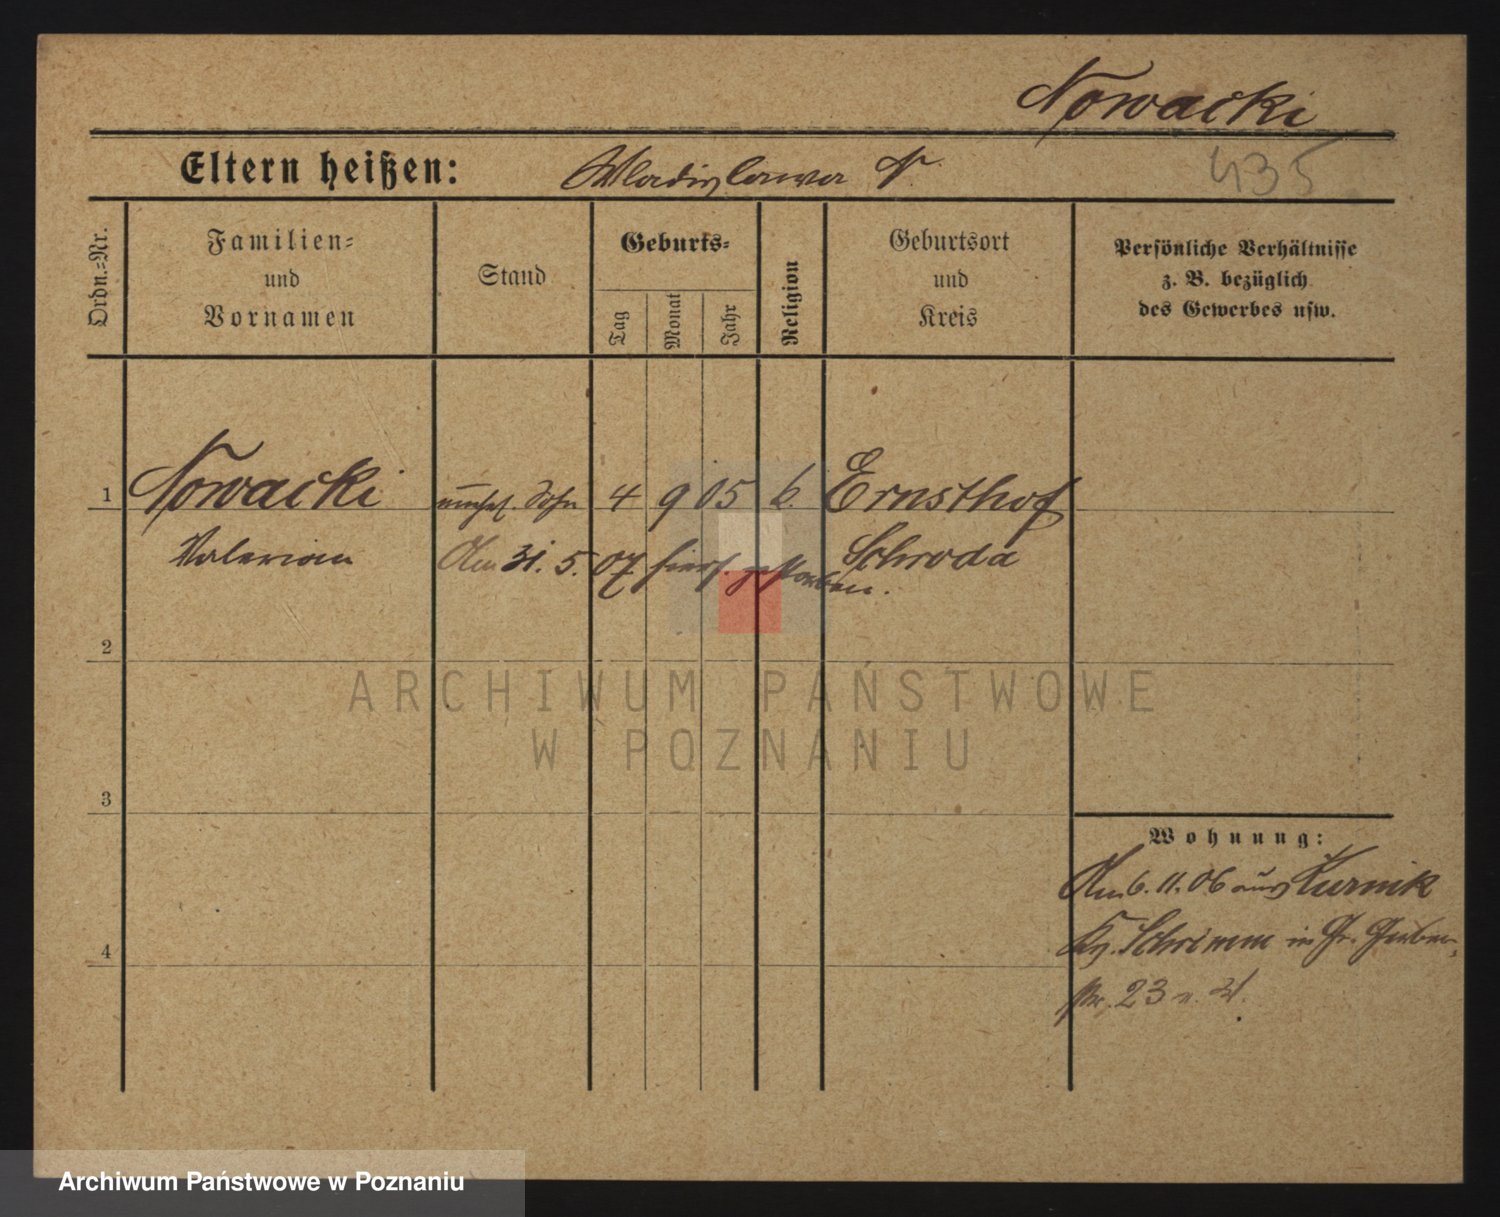 Nowacki
Eltern heißen: Wladislawa N.
435
Ordn.=Nr.
Familien=
und
Vornamen
Stand
Geburts=
Tag
Monat
Jahr
Religion
Geburtsort
und
Kreis
Persönliche Verhältnisse
z. B. bezüglich
des Gewerbes usw.
1 Nowacki unehel. Sohn 4 9 05 k. Ernsthof
Valerian Schroda
Am 31. 5. 07 hiers. gestorben.
2
3
4
Wohnung:
Am 6. 11. 06 aus Kurnik
Kr. Schrimm in Gr. Gerber-
str. 23
ARCHIWUM PAŃSTWOWE
W POZNANIU
Archiwum Państwowe w Poznaniu